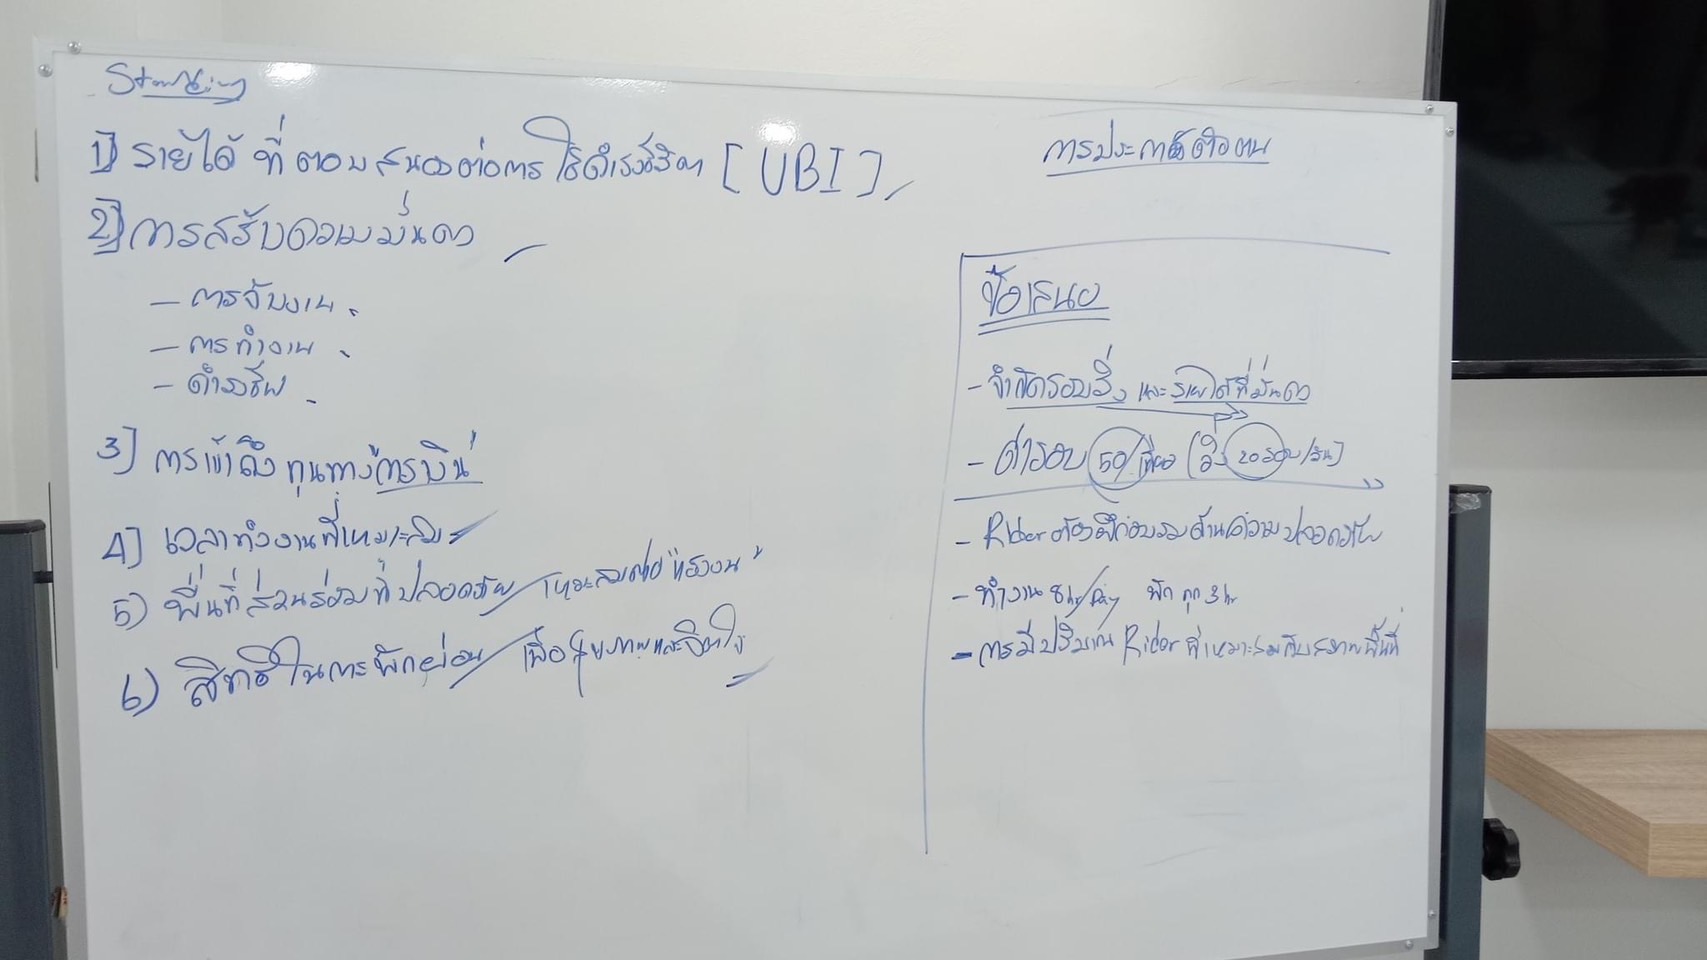 1] รายได้ ที่ ตอบสนองต่อการใช้ดำรงชีวิต [UBI]
2] การสร้างความมั่นคง
- การจ้างงาน
- การทำงาน
- ดำรงชีพ
3] การเข้าถึง ทุนทาง"การเงิน"
4] เวลาทำงานที่เหมาะสม
5) พื้นที่ส่วนร่วมที่ปลอดภัย / เหมาะสมต่อ "แรงงาน"
6) สิทธิในการพักผ่อน / เพื่อสุขภาพและจิตใจ
การประกาศตัวตน
ข้อเสนอ
- จำกัดรอบวิ่ง และรายได้ที่มั่นคง
- ค่ารอบ 50/เที่ยว (วิ่ง 20รอบ/วัน)
- Riderต้องฝึกอบรมด้านความปลอดภัย
- ทำงาน 8hr/Day พัก ทุก 3hr
- การมีปริมาณ Rider ที่เหมาะสมกับสภาพพื้นที่